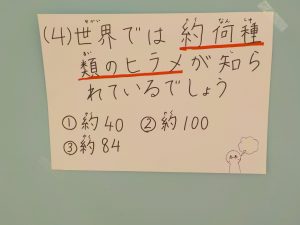 (4)世界では 約何種
類のヒラメが知ら
れているでしょう
①約40 ②約100
③約84